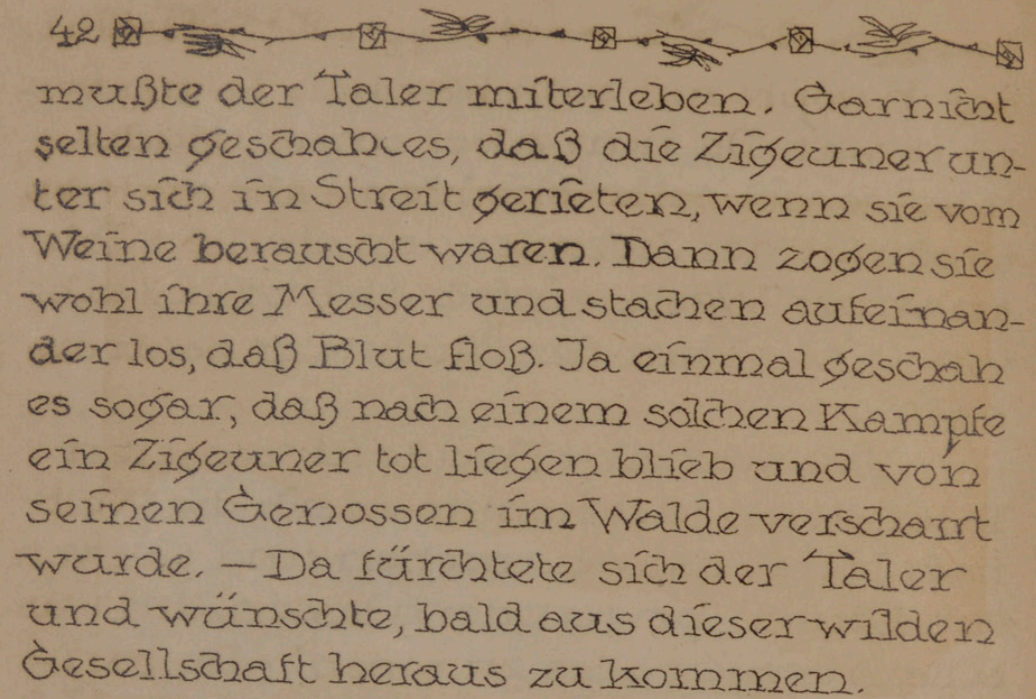 42
mußte der Taler miterleben. Garnicht
selten geschah es, daß die Zigeuner un-
ter sich in Streit gerieten, wenn sie vom
Weine berauscht waren. Dann zogen sie
wohl ihre Messer und stachen aufeinan-
der los, daß Blut floß. Ja einmal geschah
es sogar, daß nach einem solchen Kampfe
ein Zigeuner tot liegen blieb und von
seinen Genossen im Walde verscharrt
wurde. — Da fürchtete sich der Taler
und wünschte, bald aus dieser wilden
Gesellschaft heraus zu kommen.